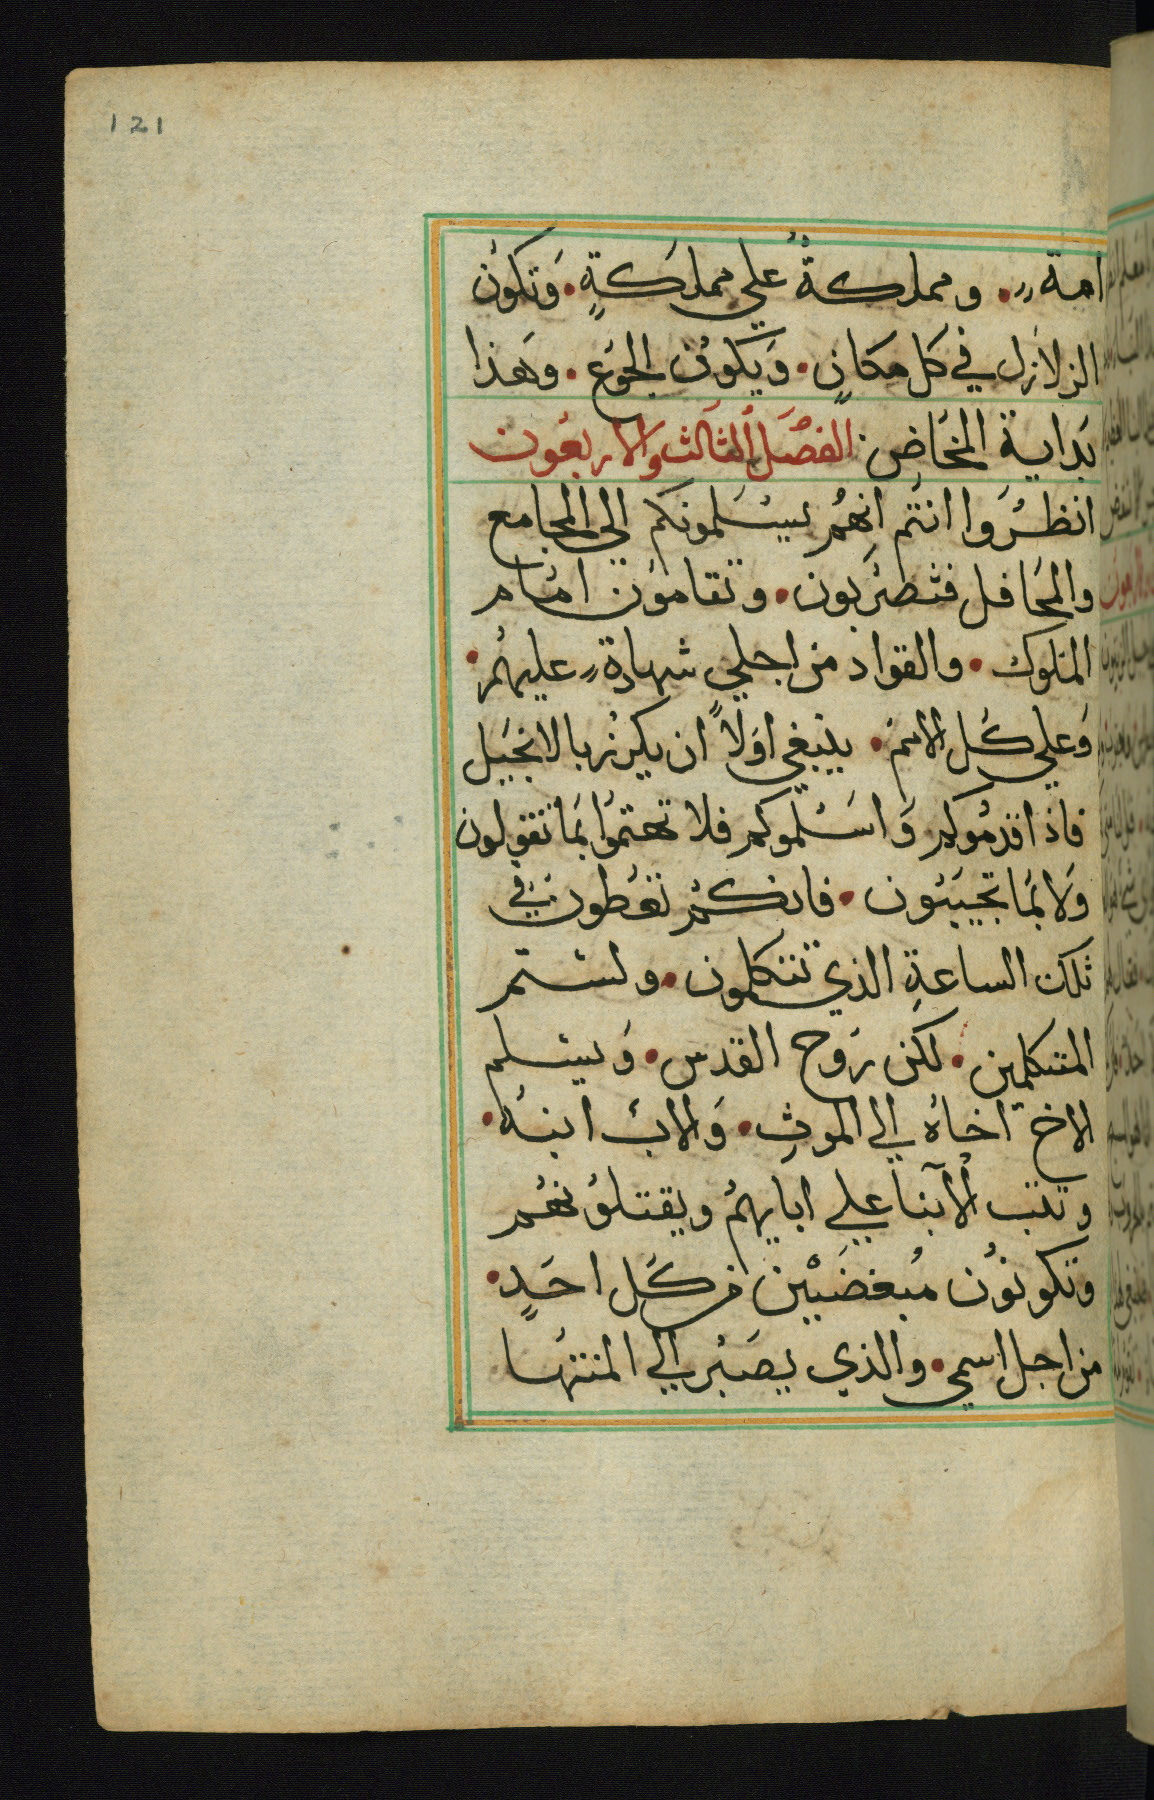 121
امة. ومملكةُ علي مملكةٍ. وَتكون
الزلازل في كل مكانٍ. وَيكون الجوع. وهذا
بَداية المخاضِ: الفصَل الثالث والاربعون
انظرُوا انتم انهم يسَلمونكم الي المجامع
والمحافل فتضربون. وتقامون امام
الملوك. والقواد من اجلي شهادة عليهم.
وَعلي كل الامم. ينبغي اولاً ان يكرز بالانجيل
فاذا قدموكم وَاسَلموكم فلا تهتموا بما تقولون
وَلا بمَا تجيبَون. فانكم تعطون في
تلك الساعةِ الذي تتكلمون. ولستم
المتكلمين. لكن رَوح القدس. وَيسلم
الاخ اخاهُ الي الموت. وَالاب ابنهُ.
وتثب الابنا علي ابايهم ويقتلونهم
وتكونون مبغضَين من كل احَدٍ.
من اجل اسمي. والذي يصَبر الي المنتها